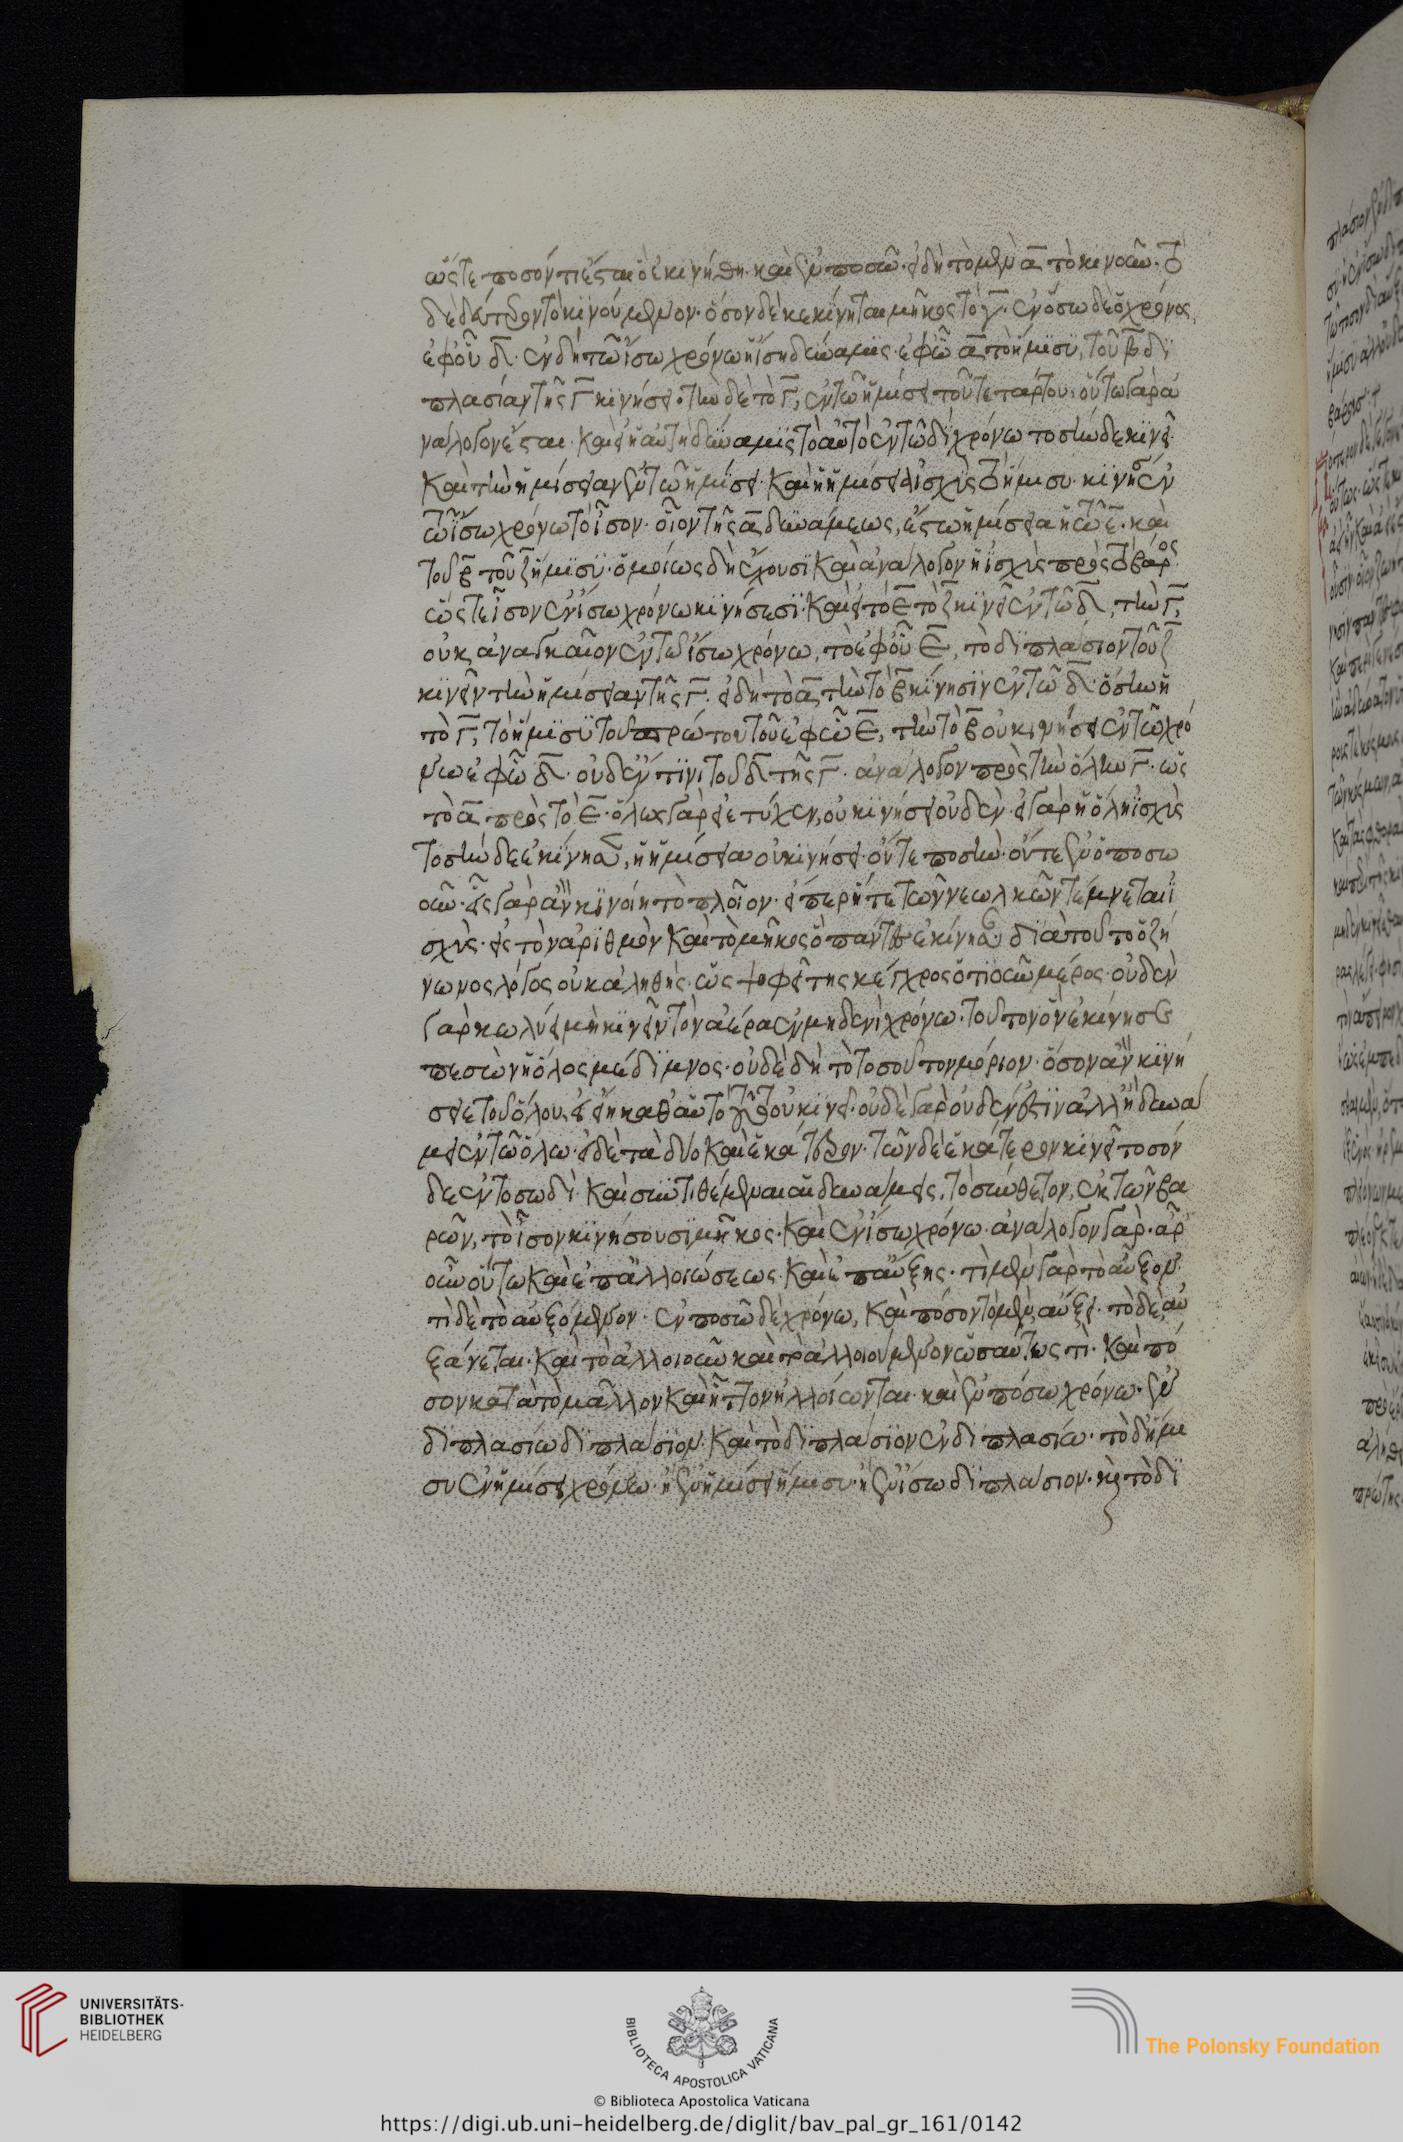 ὥστε ποσόν τι ἔσται ὃ ἐκινήθη καὶ ἐν ποσῶ. εἰ δὴ τὸ μὲν α τὸ κινοῦν. τὸ
δὲ δεύτερον τὸ κινούμενον. ὅσον δὲ κεκίνηται μῆκος τὸ γ. ἐν ὅσω δὲ ὁ χρόνος
ἐφ οὗ δ. ἐν δὴ τῶ ἴσω χρόνω ἡ ἴση δύναμις ἐφ ὧ α τὸ ἥμισυ τοῦ β δι
πλασίαν τῆς γ κινήσει. τὴν δὲ τὸ γ, ἐν τῶ ἡμίσει τοῦ τετάρτου. οὕτω γὰρ ἀ
νάλογον ἔσται. καὶ εἰ ἡ αὐτὴ δύναμις τὸ αὐτὸ ἐν τῶ δὶ χρόνω τοσήνδε κινεῖ
καὶ τὴν ἡμίσειαν ἐν τῶ ἡμίσει. καὶ ἡ ἡμίσει ἰσχὺς τὸ ἥμισυ κινήσει ἐν
τῶ ἴσω χρόνω τὸ ἴσον. οἷον τῆς α δυνάμεως, ἔστω ἡμίσεια ἡ τὸ ε. καὶ
τοῦ β τοῦ ζ ἥμισυ. ὁμοίως δὴ ἔχουσι καὶ ἀνάλογον ἡ ἰσχὺς πρὸς τὸ βάρος
ὥστε ἴσον ἐν ἴσω χρόνω κινήσεσι. καὶ εἰ τὸ ε τὸ ζ κινεῖ ἐν τῶ δ, τὴν γ,
οὐκ ἀναγκαῖον ἐν τῶ ἴσω χρόνω, τὸ ἐφ οὗ ε, τὸ διπλάσιον τοῦ ζ
κινεῖν τὴν ἡμίσειαν τῆς γ. εἰ δὴ τὸ α τὴν τὸ β κίνησιν ἐν τῶ δ ὅσην ἡ
τὸ γ, τὸ ἥμισυ τοῦ πρώτου τοῦ ἐφ ὧ ε, τὴν τὸ β οὐ κινήσει ἐν τῶ χρό
νω ἐφ ὧ δ. οὐδ ἔν τινι τοῦ δ τῆς γ. ἀνάλογον πρὸς τὴν ὅλην γ. ὡς
τὸ α πρὸς τὸ ε. ὅλως γὰρ εἰ ἔτυχεν, οὐ κινήσει οὐδέν. εἰ γὰρ ἡ ὅλη ἰσχὺς
τοσήνδε ἐκίνησεν, ἡ ἡμίσεια οὐ κινήσει. οὔτε ποσὴν οὔτε ἐν ὁποσω
οῦν. εἷς γὰρ ἂν κινοίη τὸ πλοῖον. εἴπερ ἥ τε τῶν νεωλκῶν τέμνεται ἰ
σχὺς. εἰς τὸν ἀριθμὸν καὶ τὸ μῆκος ὃ πάντες ἐκίνησαν. διὰ τοῦτο ὁ ζή
νωνος λόγος οὐκ ἀληθὴς. ὡς ψοφεῖ τῆς κέγχρος ὁτιοῦν μέρος. οὐδὲν
γὰρ κωλύει μὴ κινεῖν τὸν ἀέρα ἐν μηδενὶ χρόνω. τοῦτον ὃν ἐκίνησεν
πεσὼν ἡ ὅλος μέδιμνος. οὐδὲ δὴ τὸ τοσοῦτον μόριον. ὅσον ἂν κινή
σειε τοῦ ὅλου, εἰ εἴη καθ αὑτὸ τοῦτο οὐ κινεῖ. οὐδὲ γὰρ οὐδέν ἐστιν ἀλλ ἢ δυνά
μει ἐν τῶ ὅλω. εἰ δὲ τὰ δύο καὶ ἑκάτερον. τῶν δὲ ἑκάτερον κινεῖ τοσόν
δε ἐν τοσωδί. καὶ συντιθέμεναι αἱ δυνάμεις, τὸ σύνθετον, ἐκ τῶν βα
ρῶν, τὸ ἴσον κινήσουσι μῆκος. καὶ ἐν ἴσω χρόνω. ἀνάλογον γάρ. ἆρ
οὖν οὕτω καὶ ἐπ ἀλλοιώσεως. καὶ ἐπ αὔξης. τὶ μὲν γὰρ τὸ αὖξον.
τὶ δὲ τὸ αὐξόμενον. ἐν ποσῶ δὲ χρόνω, καὶ πόσον τὸ μὲν, αὔξει. τὸ δὲ, αὐ
ξάνεται. καὶ τὸ ἀλλοιοῦν καὶ τὸ ἀλλοιούμενον ὡσαύτως τὶ. καὶ πό
σον κατὰ τὸ μᾶλλον καὶ ἧττον ἠλλοίωνται. καὶ ἐν πόσω χρόνω. ἐν
διπλασίω διπλάσιον. καὶ τὸ διπλάσιον ἐν διπλασίω. τὸ δ ἥμι
συ ἐν ἡμίσει χρόνω. ἢ ἐν ἡμίσει ἥμισυ. ἢ ἐν ἴσω διπλάσιον. καὶ τὸ δι
UNIVERSITÄTS-
BIBLIOTHEK
HEIDELBERG
BIBLIOTECA APOSTOLICA VATICANA
The Polonsky Foundation
© Biblioteca Apostolica Vaticana
https://digi.ub.uni-heidelberg.de/diglit/bav_pal_gr_161/0142